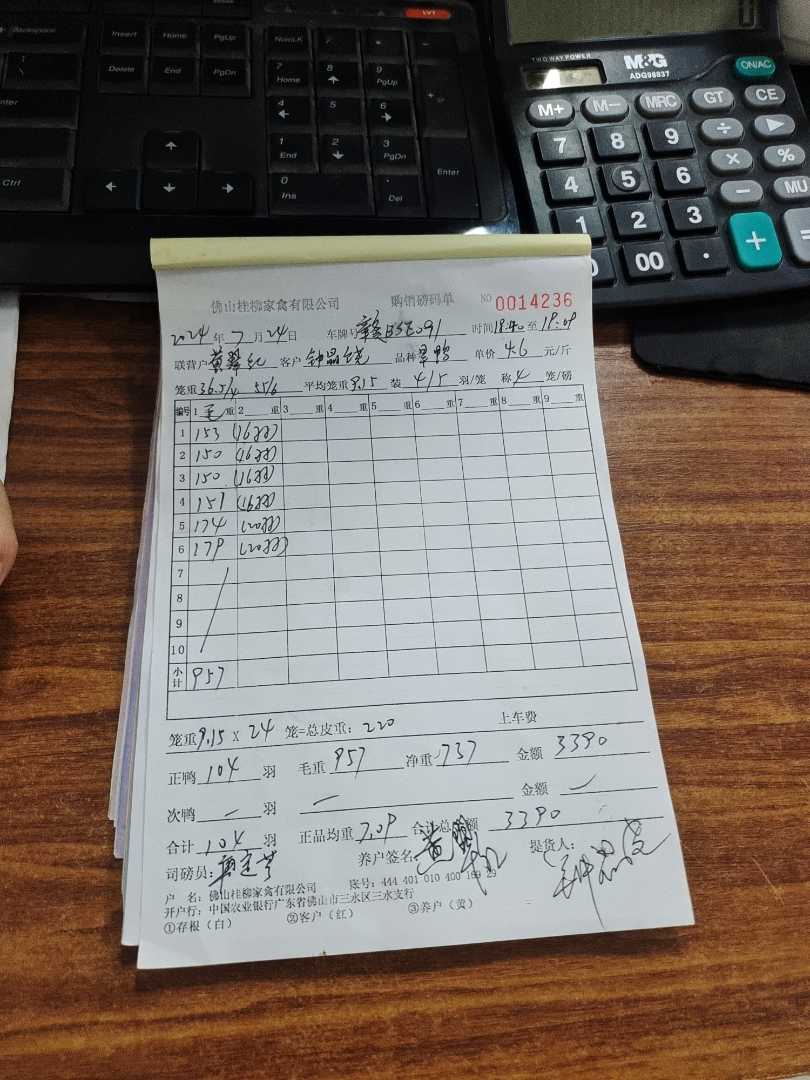 Backspace Insert Home PgUp NumLK / * -
\ Delete End PgDn 7 Home 8 9 PgUp +
Enter 4 5 6
1 End 2 3 PgDn Enter
Ctrl 0 Ins . Del
TWO WAY POWER M&G ADG98837 ON/AC
M+ M− MRC GT CE
7 8 9 ÷ ▶
4 5 6 × %
1 2 3 − MU
0 00 · + =
佛山桂柳家禽有限公司 购销磅码单 NO 0014236
2024年7月24日 车牌号 时间18:40至19:09
联营户 客户 品种 单价4.6元/斤
笼重36.5/4 55/6 平均笼重9.15 装4/5羽/笼 称4笼/磅
编号 1毛重 2重 3重 4重 5重 6重 7重 8重 9重
1 153 (16羽)
2 150 (16羽)
3 150 (16羽)
4 151 (16羽)
5 174 (20羽)
6 179 (20羽)
7
8
9
10
小计 957
笼重9.15×24笼=总皮重:220 上车费
正鸭104羽 毛重957 净重737 金额3390
次鸭—羽 — 金额
合计104羽 正品均重7.09 合计总金额3390
司磅员: 养户签名: 提货人:
户 名:佛山桂柳家禽有限公司 账号:444 401 010 400 169 29
开户行:中国农业银行广东省佛山市三水区三水支行
①存根(白) ②客户(红) ③养户(黄)